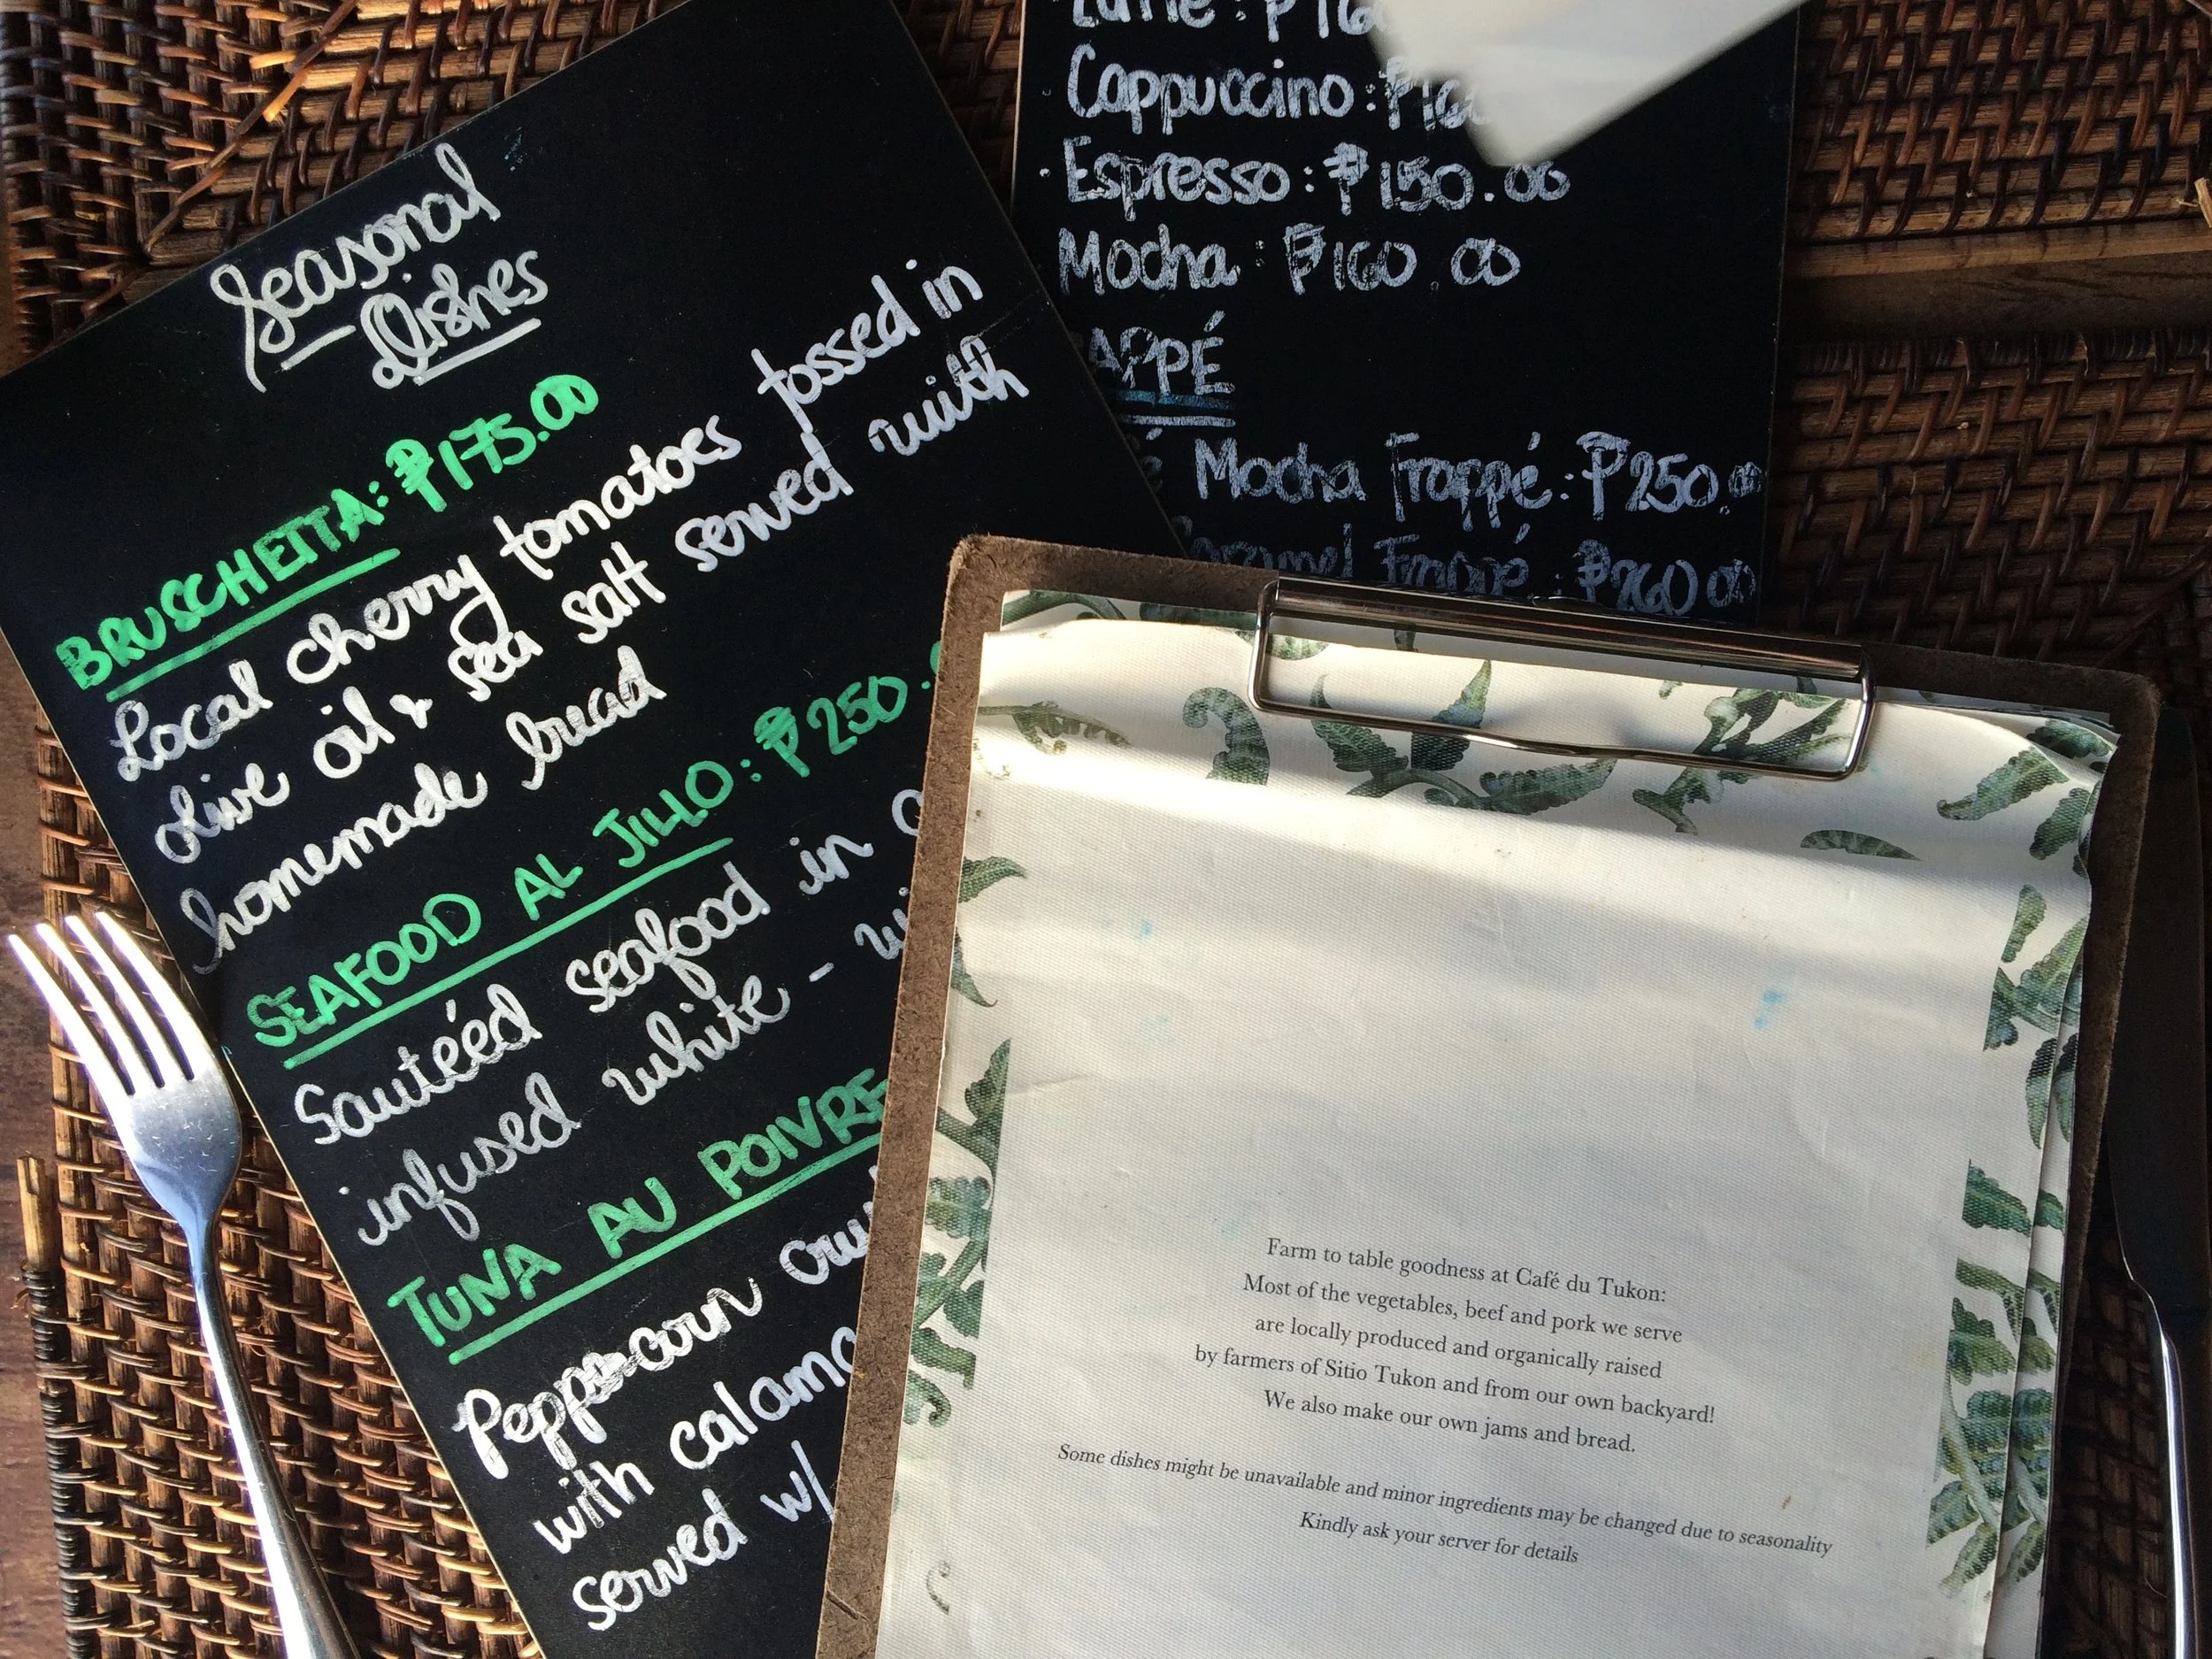 Seasonal
Dishes
BRUSCHETTA: ₱175.00
Local cherry tomatoes tossed in
olive oil & sea salt served with
homemade bread
SEAFOOD AL JILLO: ₱250.
Sautéed seafood in
infused white - wi
TUNA AU POIVRE
Peppercorn cru
with calama
served w/
Latte: ₱160
Cappuccino: ₱160
Espresso: ₱150.00
Mocha: ₱160.00
APPÉ
é Mocha Frappé: ₱250.00
Caramel Frappé: ₱260.00
Farm to table goodness at Café du Tukon:
Most of the vegetables, beef and pork we serve
are locally produced and organically raised
by farmers of Sitio Tukon and from our own backyard!
We also make our own jams and bread.
Some dishes might be unavailable and minor ingredients may be changed due to seasonality
Kindly ask your server for details